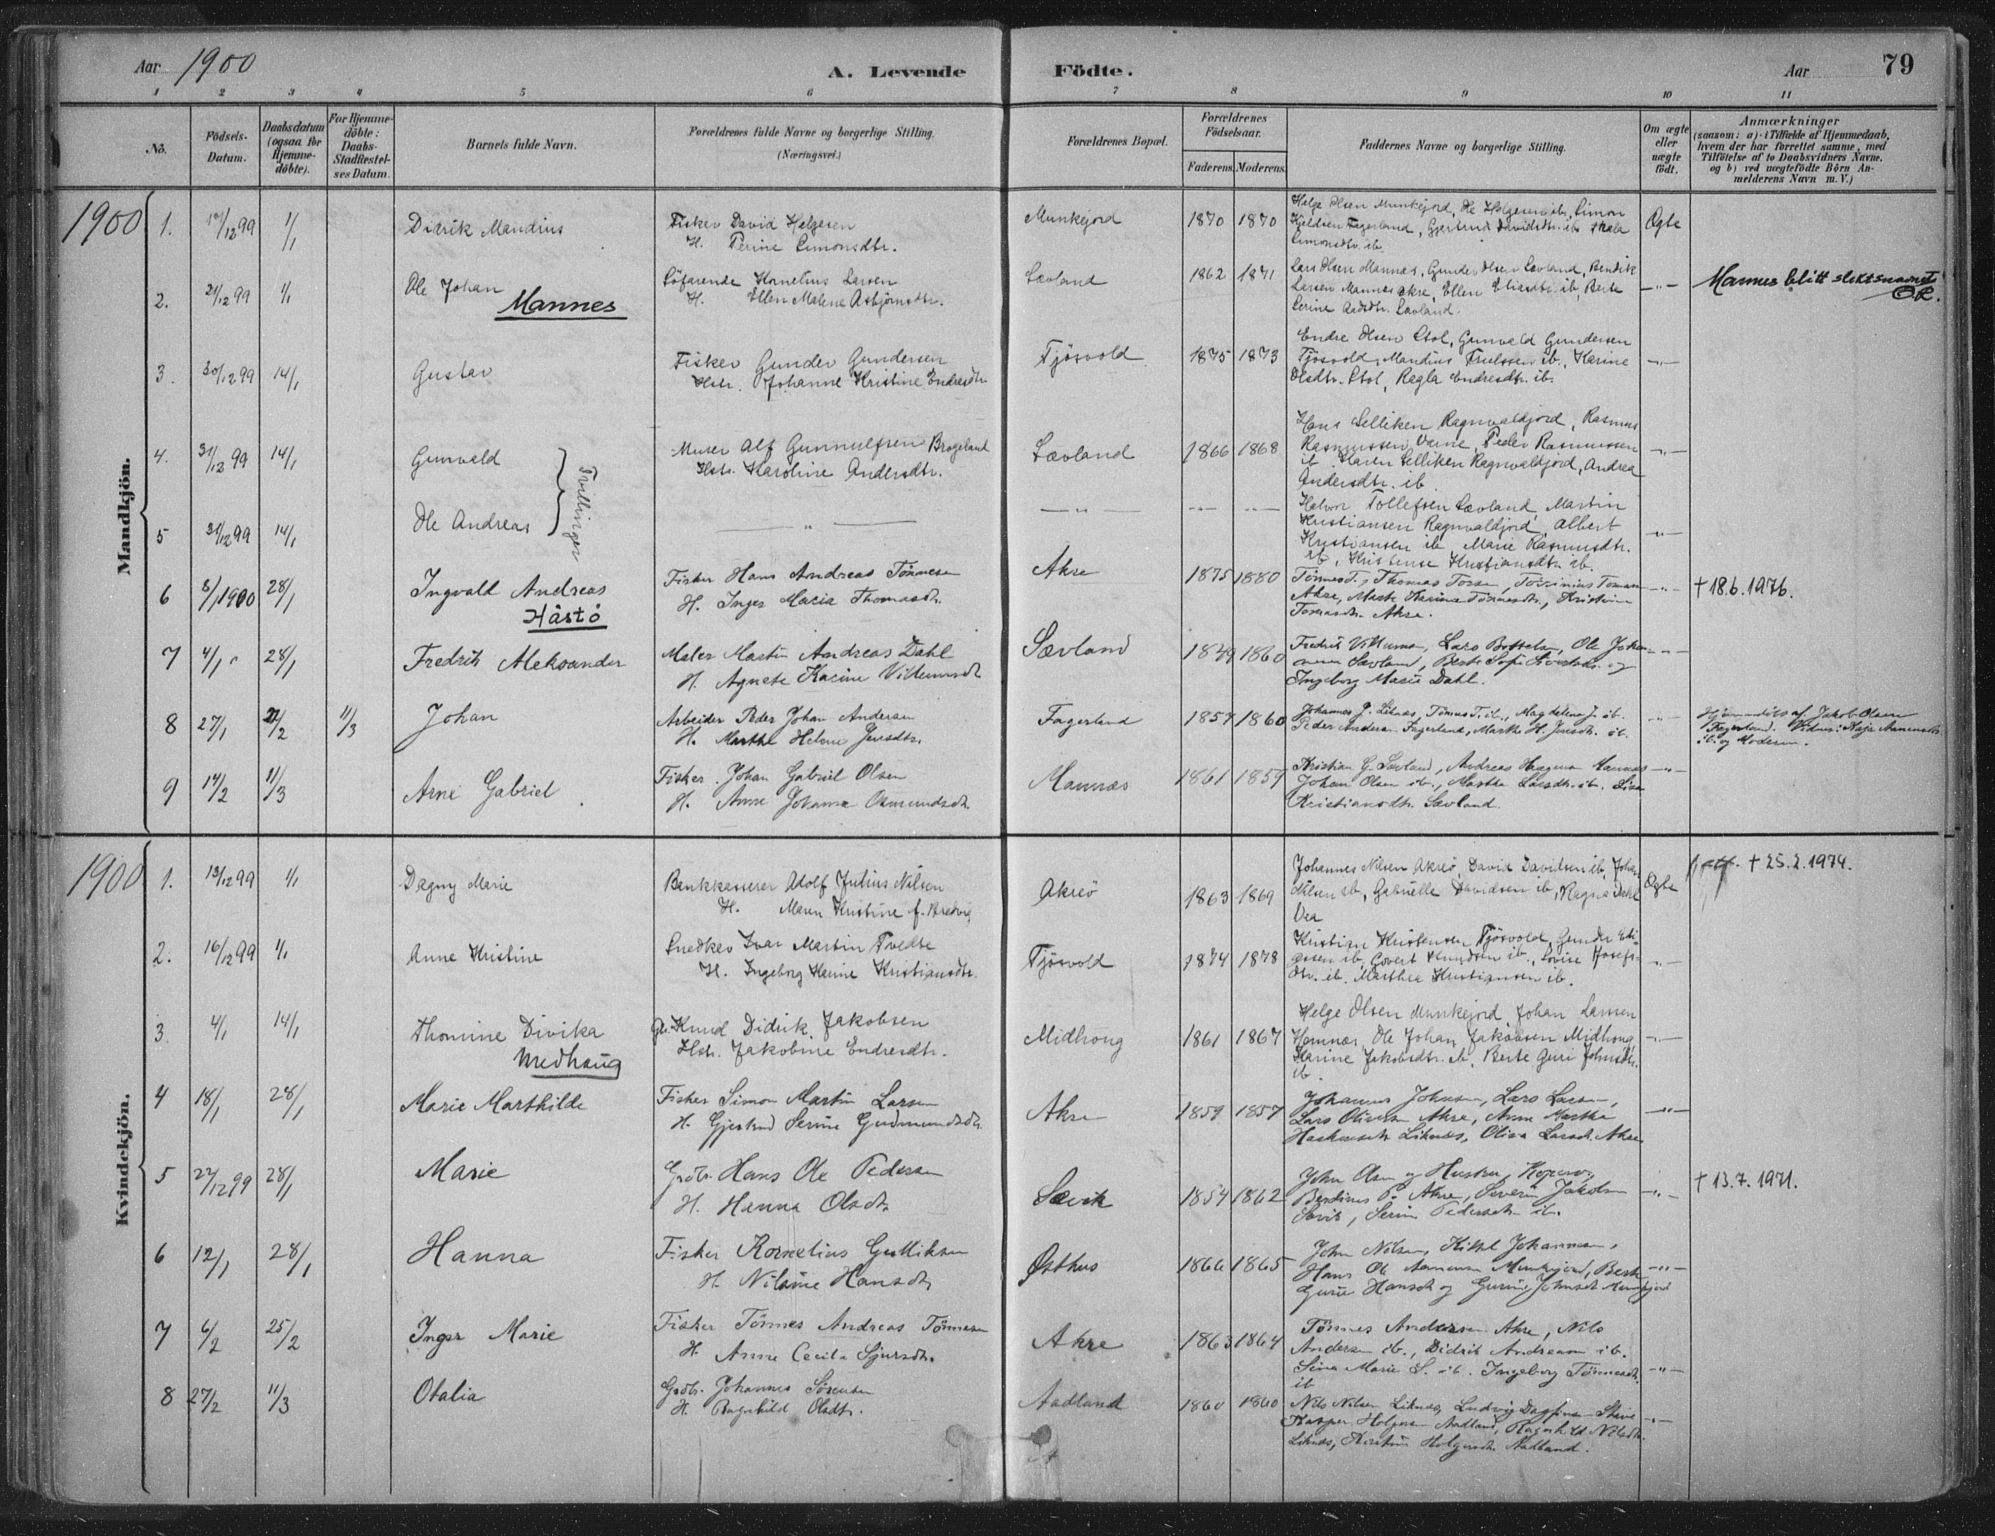 Aar 1900 A. Levende Födte. Aar 79
1 2 3 4 5 6 7 8 9 10 11
No. Födsels-Datum. Daabsdatum (ogsaa for Hjemmedöbte). For Hjemmedöbte: Daabs-Stadfestelses Datum. Barnets fulde Navn. Forældrenes fulde Navne og borgerlige Stilling. (Næringsvei.) Forældrenes Bopæl. Forældrenes Födselsaar. Faderens. Moderens. Faddernes Navne og borgerlige Stilling. Om ægte eller uægte födt. Anmærkninger (saasom: a) i Tilfælde af Hjemmedaab, hvem der har forrettet samme, med Tilföielse af to Daabsvidners Navne, og b) ved uægtefödte Börn Anmelderens Navn m. V.)
Mandkjön.
1900 1. 1/1 Didrik Mandius Fisker David Helgesen Munkejord 1870 1870 Helge Olsen Munkejord, Ole Helgesen ib., Simon
H. Perine Simonsdtr. Kjeldsen Fagerland, Gjertrud Davidsdtr. ib. Ægte
Simonsdtr. ib.
2. 21/12 99 1/1 Ole Johan Søfarende Kornelius Larsen Sævland 1862 1871 Lars Olsen Mannes, Gunder Olsen Sævland, Bendik
Mannes H. Ellen Malene Asbjørnsdtr. Larsen Mannes, Ellen Eliasdtr. ib., Berte -"- Mannes blitt slektsnavnet
Serine Sævland. O.R.
3. 30/12 99 14/1 Gustav Fisker Gunder Gundersen Tjøsvold 1875 1873 Endre Olsen Stol, Gunvald Gundersen
Hstr. Johanne Kristine Endresdtr. Tjøsvold, Mandius Truelssen ib., Karine -"-
Olsdtr. Stol, Ragla Endresdtr. ib.
4. 31/12 99 14/1 Gunvald Murer Alf Gunnulfsen Brogeland Sævland 1866 1868 Hans Selliken Ragnvaldjord, Rasmus
Tvillinger Hstr. Karoline Andersdtr. Rasmussen, Peder Rasmussen -"-
ib. Karen Selliken Ragnvaldjord, Andrea
Andersdtr. ib.
5 31/12 99 14/1 Ole Andreas -"- -"- Halvor Tollefsen Sævland, Martin
Kristiansen Ragnvaldjord, Albert -"-
Kristiansen ib. Marie Rasmusdtr.
ib., Kristense Kristiansdtr. ib.
6 3/1 1900 28/1 Ingvald Andreas Fisker Hans Andreas Tönnesen Akre 1875 1880 Tönnes T., Thomas -"- † 18.6.1976.
Håstø H. Inger Maria Thomasdtr. Akre, Kristine
Akre.
7 4/1 28/1 Fredrik Aleksander Maler Martin Andreas Dahl Sævland 1860 Fredrik Lars Ole Johan -"-
H. Agnete Karine Sævland, Berte Sofie og
Ingeborg Marie Dahl.
8 27/1 1/3 Johan Arbeider Peder Johan Andersen Fagerland 1857 1860 Johannes J. Liknes, Tönnes T. ib., Magdelena J. ib. -"- af Jakob Olsen
H. Marthe Helene Jensdtr. Peder Andersen Fagerland, Marthe H. Jensdtr. ib. Fagerland.
ib. og Moderen.
9 14/2 11/3 Arne Gabriel Fisker Johan Gabriel Olsen Mannæs 1861 1859 Kristian G. Sævland, Andreas Mannæs -"-
H. Anne Johanna Osmundsdtr. Johan Olsen ib., Martha Larsdtr. ib.
Kristiansdtr. Sævland.
Kvindekjön.
1900 1. 13/12 99 1/1 Dagny Marie Bankkasserer Adolf Julius Nilsen Akreö 1863 1869 Johannes Nilsen Akreö, David Davidsen ib., Johan † 25.2.1974.
H. Maren Kristine f. Bredvig Nilsen ib., Gabrielle Davidsen ib., Ragna Dahl Ægte
Vea
2. 16/12 99 1/1 Anne Kristine Snedker Ivar Martin Tvedte Tjøsvold 1874 1878 Kristian Kristensen Tjøsvold, Gunder
H. Ingeborg Karine Kristiansdtr. ib., Govert Knudsen ib., Lovise Josefs- -"-
dtr. ib. Marthea Kristiansen ib.
3. 4/1 14/1 Thomine Divika Knud Didrik Jakobsen Midhoug 1861 1867 Helge Olsen Munkejord, Johan Larsen
Medhaug Hstr. Jakobine Endresdtr. Ole Johan Jakobsen Midhoug, -"-
Karine Jakobsdtr. ib., Berte Guri Johnsdtr.
ib.
4 18/1 28/1 Marie Marthilde Fisker Simon Martin Larsen Akre 1859 1857 Johannes Johnsen, Lars Larsen,
H. Gjertrud Serine Gudmundsdtr. Lars Olivers Akre, Anne Martha -"-
Liknæs, Oliva Larsdt. Akre
5 22/12 99 28/1 Marie Grdbr. Hans Ole Pedersen Sævik 1854 1862 John Olsen og Hustru, Kopervig -"- † 13.7.1971.
H. Hanna Olsdtr. Akre, Severin Jakobsen
Sævik, Serine Pedersdtr. ib.
6 12/1 28/1 Hanna Fisker Kornelius Gulliksen Østhus 1866 1865 John Nilsen, Kittel Johannesen,
H. Nilsine Hansdtr. Hans Ole Munkejord, Berte -"-
Gurie Hansdt. og Gurine Johnsdt. Munkejord
7 6/2 25/2 Inger Marie Fisker Tönnes Andreas Tönnesen Akre 1863 1864 Tönnes Andersen Akre, Nils
H. Anne Cecilie Sjursdtr. Andersen ib., Didrik Andreasen ib.
Sina Marie S. ib. Ingeborg Tönnesdt. -"-
ib
8 27/2 11/3 Otalia Grdbr. Johannes Sörensen Aadland 1860 1860 Nils Nilsen Liknes, Ludvig
H. Ragnhild Olsdtr. Kasper Holgersen Aadland, Ragnhild Nilsdtr. -"-
Liknæs, Kristine Holgersdtr. Aadland.